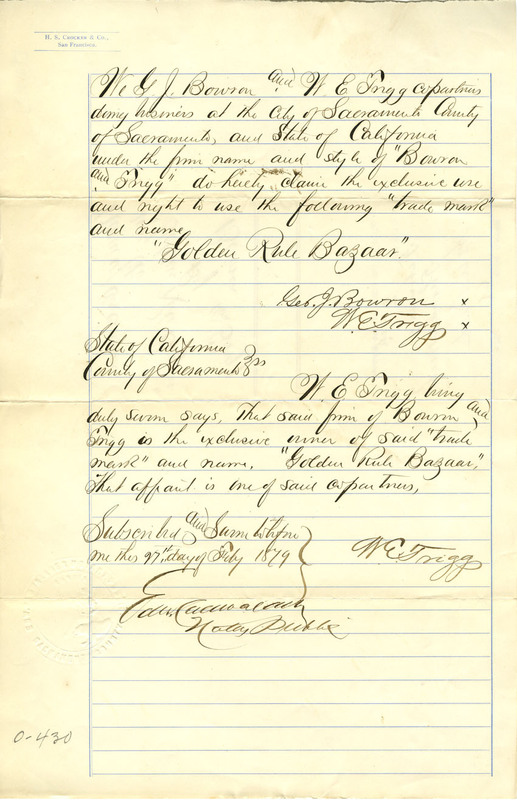 H. S. Crocker & Co.,
San Francisco.
We G J. Bowron and W E Trigg copartners
doing business at the City of Sacramento County
of Sacramento, and State of California
under the firm name and style of "Bowron
and Trigg" do hereby claim the exclusive use
and right to use the following "trade mark"
and name
"Golden Rule Bazaar."
Geo. J. Bowron x
W. E. Trigg x
State of California
County of Sacramento } ss
W. E. Trigg being
duly sworn says, That said firm of Bowron and
Trigg is the exclusive owner of said "trade
mark" and name, "Golden Rule Bazaar,"
That affiant is one of said copartners,
Subscribed and Sworn to before
me this 27th day of Feby 1879
W. E. Trigg
Edw. Cadwalader
Notary Public
0-430